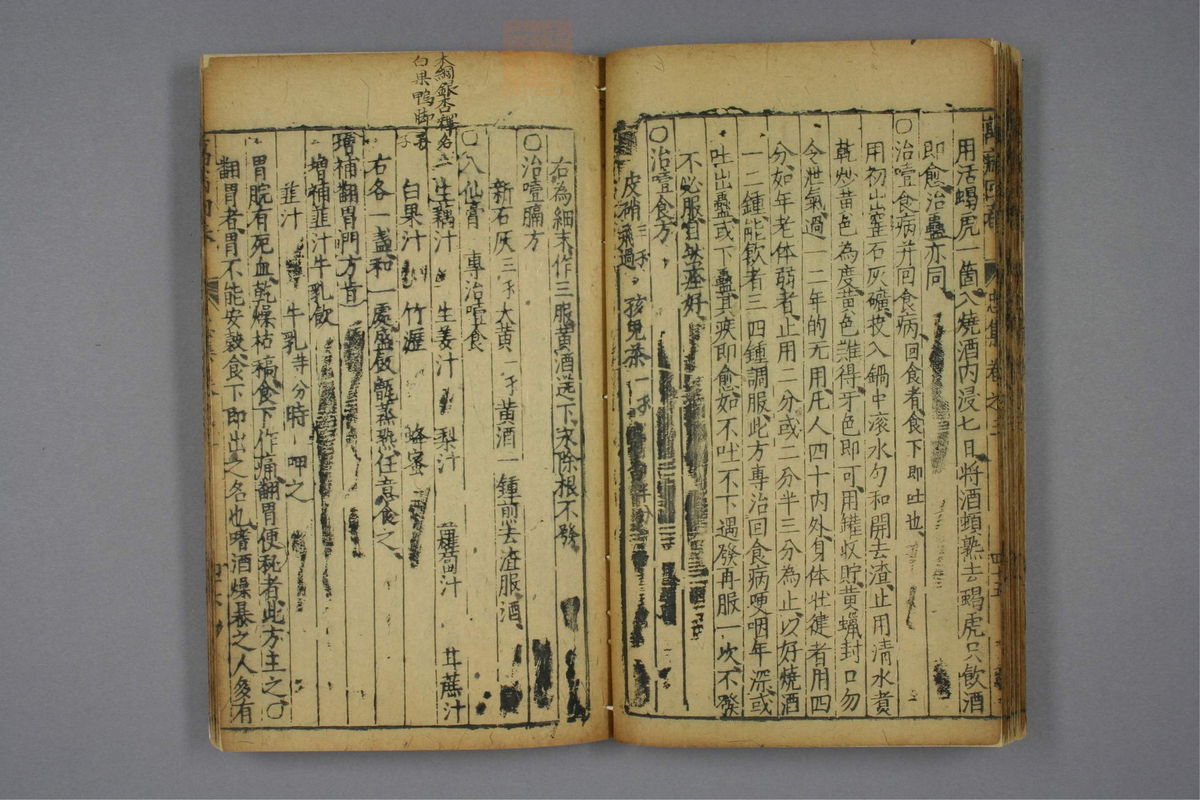 用活蝎虎一箇入燒酒內浸七日將酒頓熟去蝎虎只飲酒
即愈治蠱亦同
○治噎食病并回食病回食者食下即吐也
用初出窑石灰礦投入鍋中滾水勻和開去渣止用清水煮
乾炒黃色為度黃色難得牙色即可用罐收貯黃蠟封口勿
令泄氣過一二年的无用凡人四十內外身体壮健者用四
分如年老体弱者止用二分或二分半三分為止以好燒酒
一二鍾能飲者三四鍾調服此方專治回食病哽咽年深或
吐出蠱或下蠱其疾即愈如不吐不下遇發再服一次不發
不必服自然痊好
○治噎食方
皮硝三 孩兒茶一
右為細末作三服黃酒送下永除根不發
○治噎膈方
新石灰三 大黃一 黃酒一鍾煎去渣服酒
○八仙膏 專治噎食
生藕汁 生姜汁 梨汁 蘿蔔汁 甘蔗汁
白果汁 竹瀝 蜂蜜
右各一盞和一處盛飯甑蒸熟任意食之
增補翻胃門方
增補韮汁牛乳飲
韮汁 牛乳等分時呷之
胃脘有死血乾燥枯稿食下作痛翻胃便秘者此方主之○
翻胃者胃不能安穀食下即出之名也嗜酒燥暴之人多有
銀杏釋名
白果鴨脚